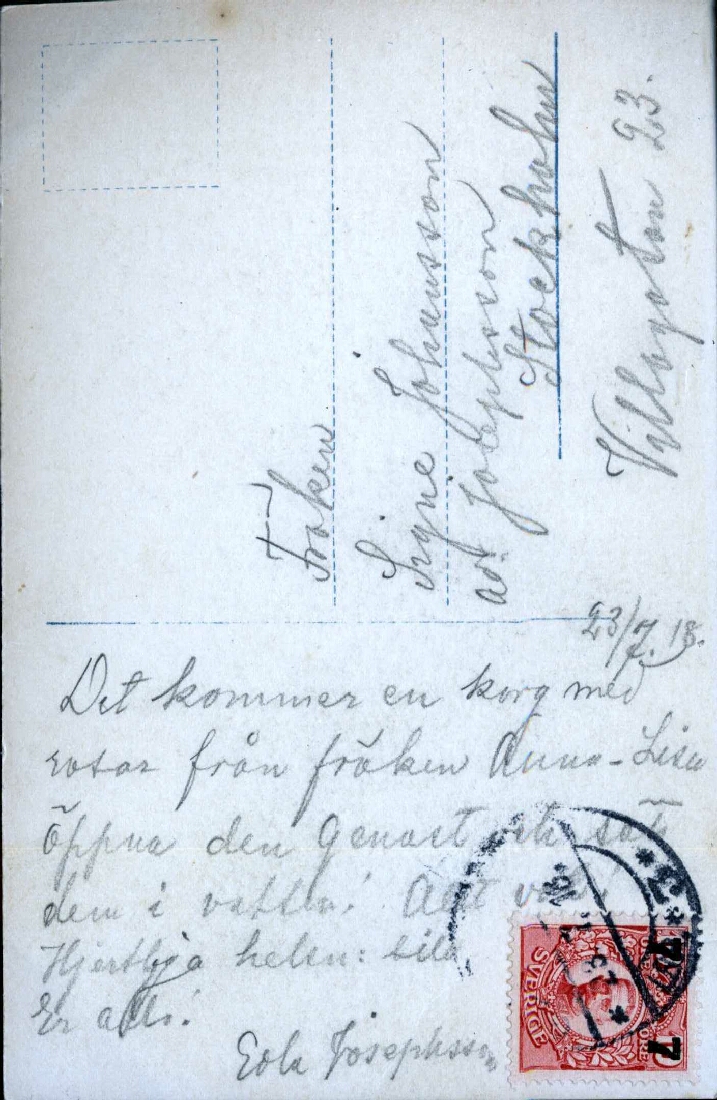 Fröken
Signe Johansson
ad. Josephsson
Stockholm
Villagatan 23.
23/7.18.
Det kommer en korg med
rosor från fröken Anna-Lisa
Öppna den genast och sätt
dem i vatten! Allt väl!
Hjertliga helsn: till
Er alla!
Josephsson
SVERIGE
7 7